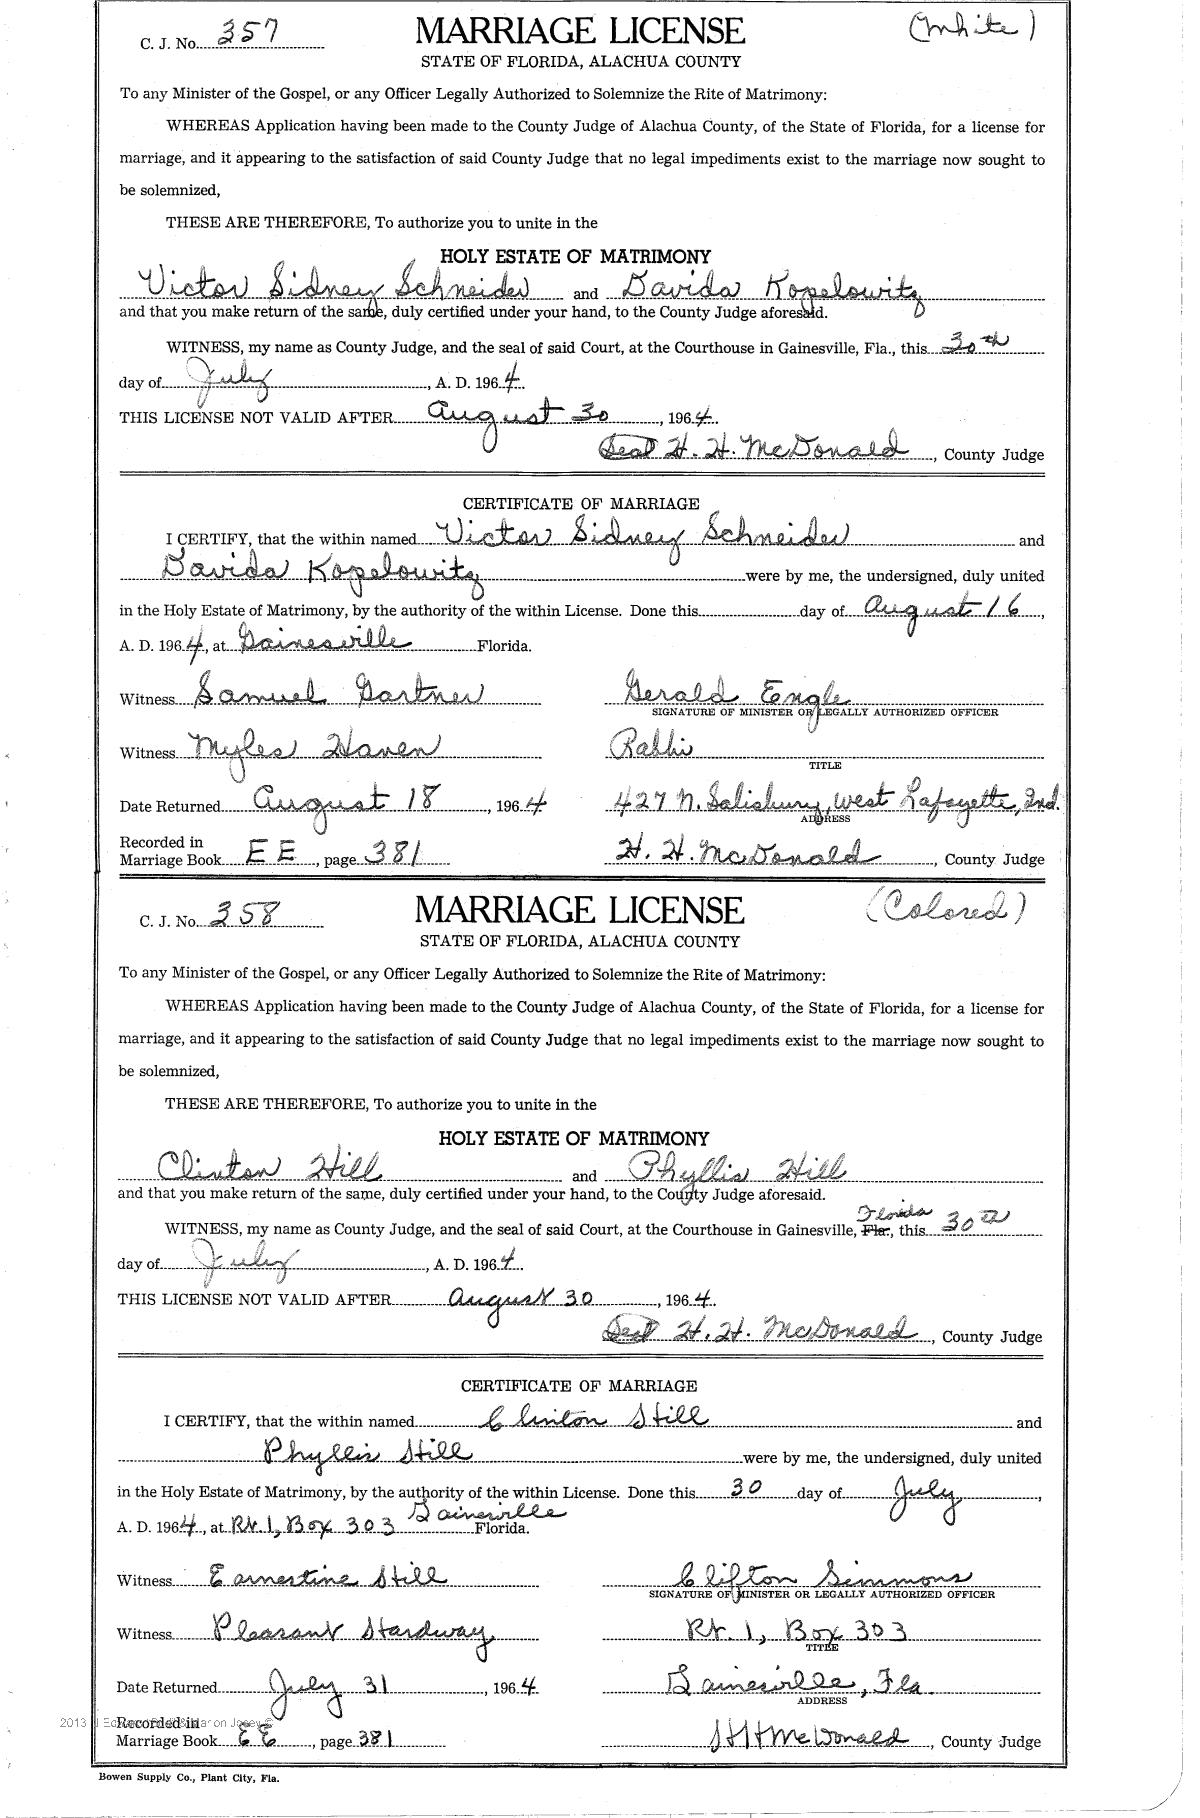 C. J. No. 357 MARRIAGE LICENSE (White)
STATE OF FLORIDA, ALACHUA COUNTY
To any Minister of the Gospel, or any Officer Legally Authorized to Solemnize the Rite of Matrimony:
WHEREAS Application having been made to the County Judge of Alachua County, of the State of Florida, for a license for
marriage, and it appearing to the satisfaction of said County Judge that no legal impediments exist to the marriage now sought to
be solemnized,
THESE ARE THEREFORE, To authorize you to unite in the
HOLY ESTATE OF MATRIMONY
Victor Sidney Schneider and Davida Kopelowitz
and that you make return of the same, duly certified under your hand, to the County Judge aforesaid.
WITNESS, my name as County Judge, and the seal of said Court, at the Courthouse in Gainesville, Fla., this 30th
day of July, A. D. 1964.
THIS LICENSE NOT VALID AFTER August 30, 1964.
Seal H. H. McDonald, County Judge
CERTIFICATE OF MARRIAGE
I CERTIFY, that the within named Victor Sidney Schneider and
Davida Kopelowitz were by me, the undersigned, duly united
in the Holy Estate of Matrimony, by the authority of the within License. Done this day of August 16,
A. D. 1964, at Gainesville Florida.
Witness Samuel Gartner Gerald Engle
SIGNATURE OF MINISTER OR LEGALLY AUTHORIZED OFFICER
Witness Myles Haven Rabbi
TITLE
Date Returned August 18, 1964 427 N. Salisbury, West Lafayette, Ind.
ADDRESS
Recorded in
Marriage Book EE, page 381 H. H. McDonald, County Judge
C. J. No. 358 MARRIAGE LICENSE (Colored)
STATE OF FLORIDA, ALACHUA COUNTY
To any Minister of the Gospel, or any Officer Legally Authorized to Solemnize the Rite of Matrimony:
WHEREAS Application having been made to the County Judge of Alachua County, of the State of Florida, for a license for
marriage, and it appearing to the satisfaction of said County Judge that no legal impediments exist to the marriage now sought to
be solemnized,
THESE ARE THEREFORE, To authorize you to unite in the
HOLY ESTATE OF MATRIMONY
Clinton Hill and Phyllis Hill
and that you make return of the same, duly certified under your hand, to the County Judge aforesaid.
Florida
WITNESS, my name as County Judge, and the seal of said Court, at the Courthouse in Gainesville, Fla., this 30th
day of July, A. D. 1964.
THIS LICENSE NOT VALID AFTER August 30, 1964.
Seal H. H. McDonald, County Judge
CERTIFICATE OF MARRIAGE
I CERTIFY, that the within named Clinton Hill and
Phyllis Hill were by me, the undersigned, duly united
in the Holy Estate of Matrimony, by the authority of the within License. Done this 30 day of July,
A. D. 1964, at Rt. 1, Box 303 Gainesville Florida.
Witness Earnestine Hill Clifton Simmons
SIGNATURE OF MINISTER OR LEGALLY AUTHORIZED OFFICER
Witness Pleasant Hardway Rt. 1, Box 303
TITLE
Date Returned July 31, 1964 Gainesville, Fla.
ADDRESS
2013 Recorded in
Marriage Book EE, page 381 HH McDonald, County Judge
Bowen Supply Co., Plant City, Fla.